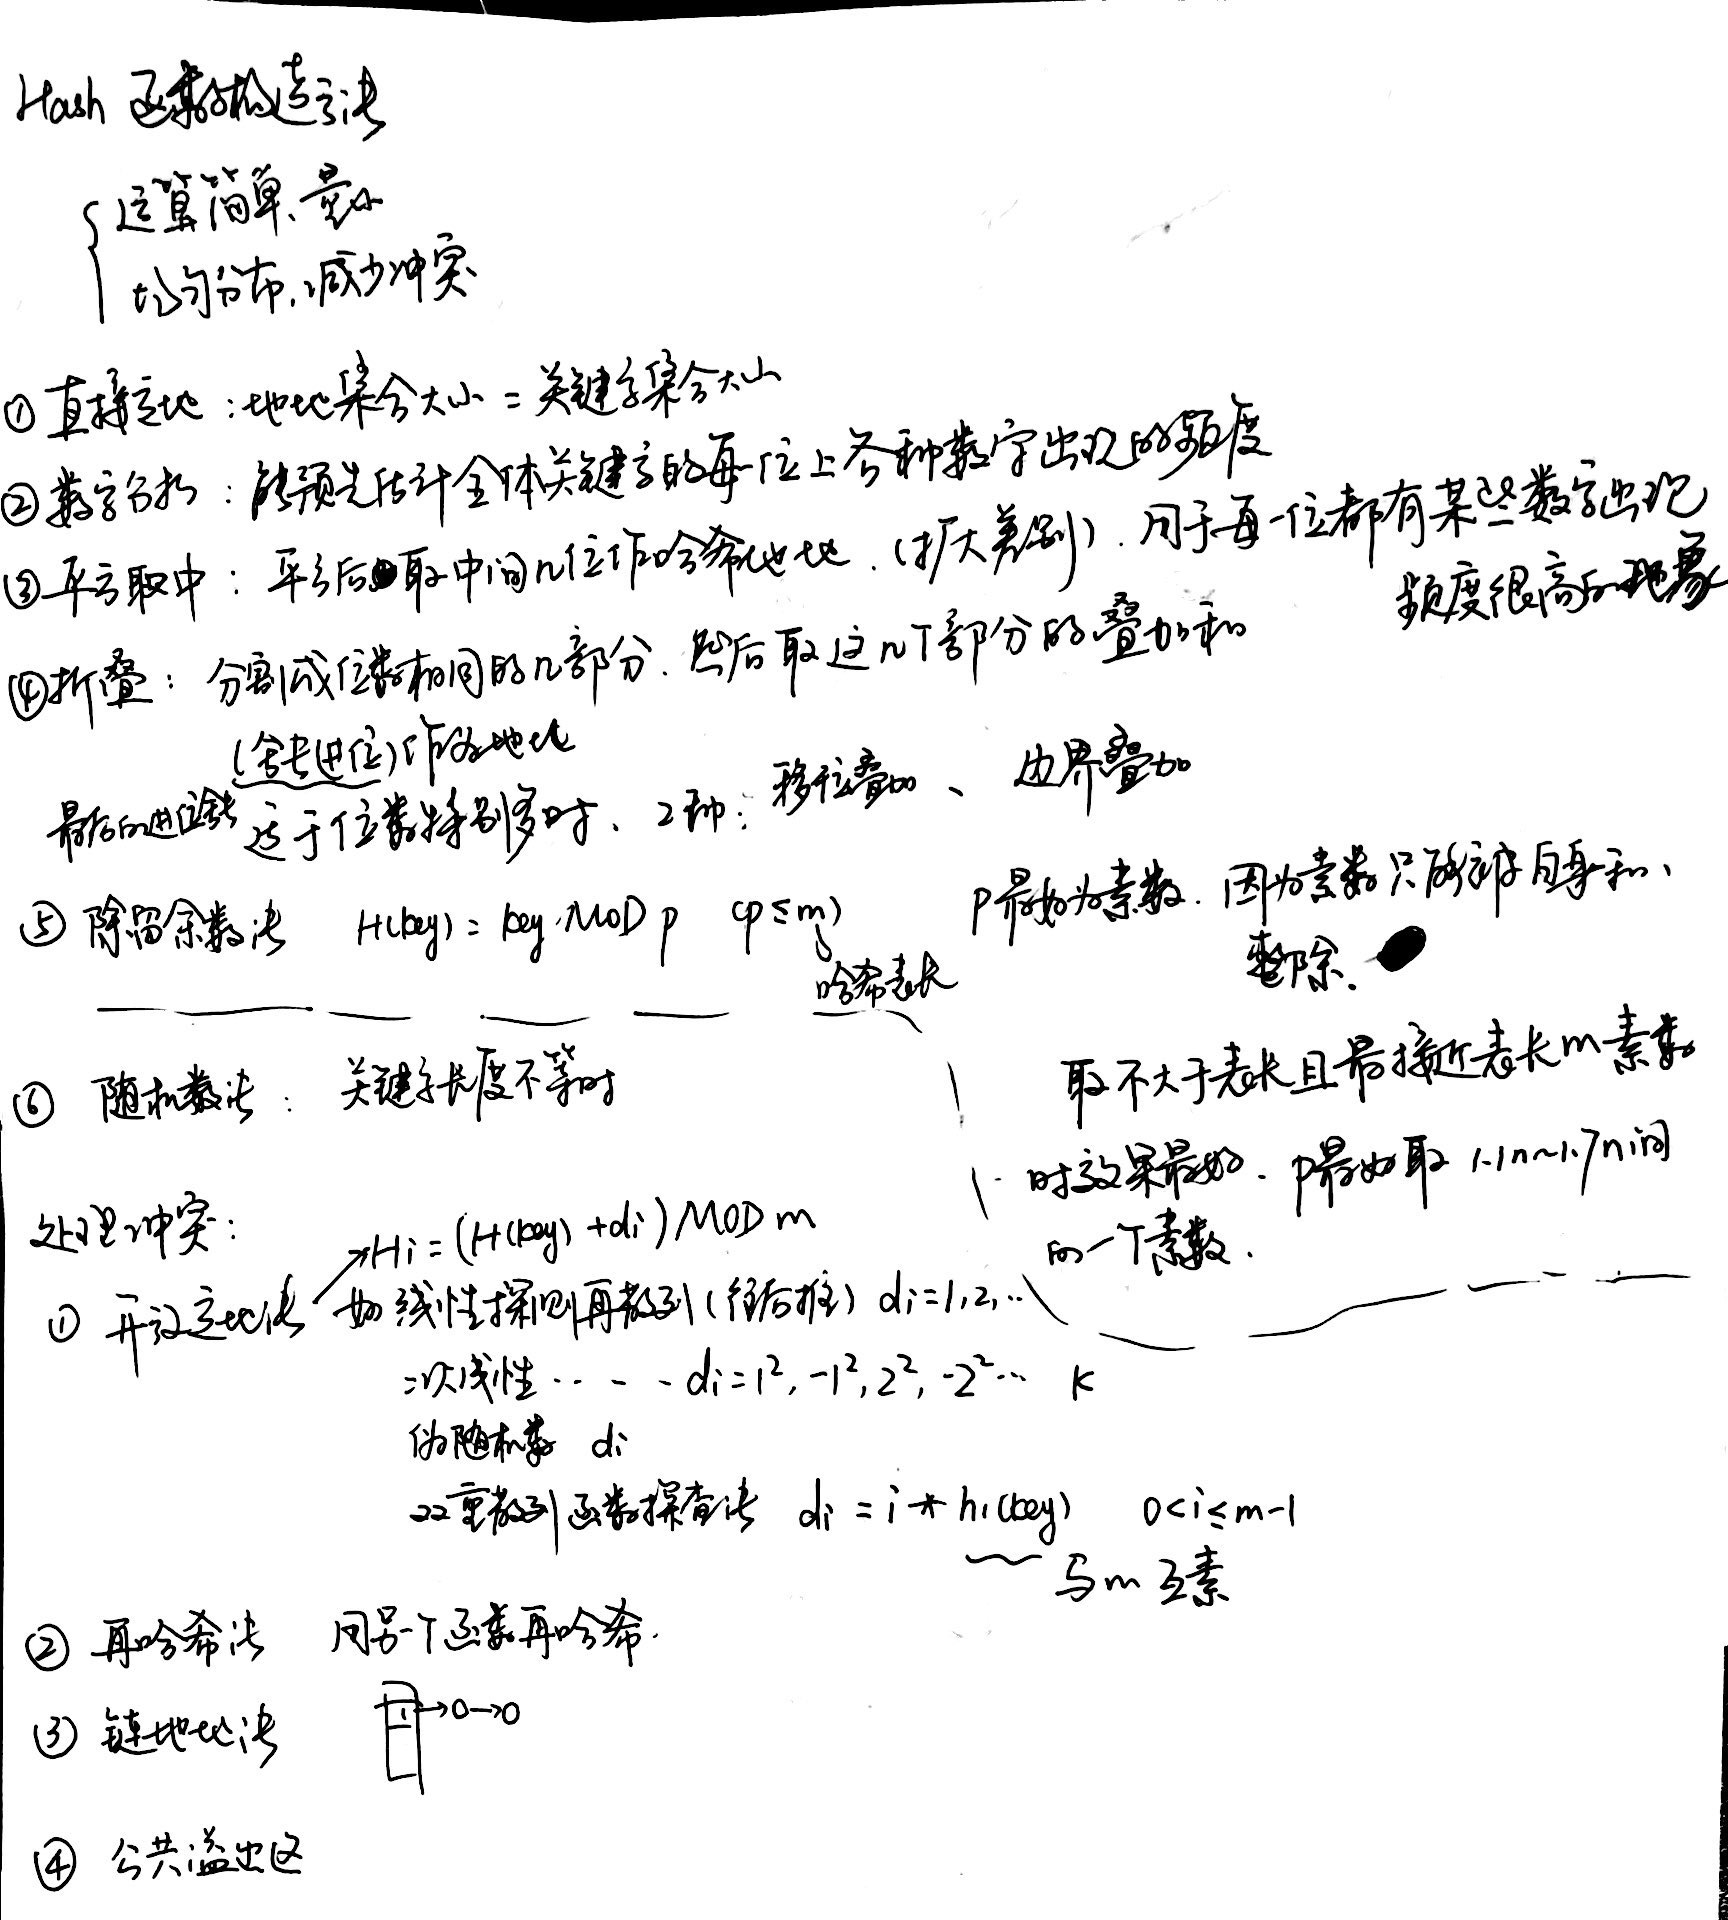 Hash 函数构造方法
运算简单、量小
均匀分布,减少冲突
① 直接定址：地址集合大小 = 关键字集合大小
② 数字分析：能预先估计全体关键字的每一位上各种数字出现的频度
③ 平方取中：平方后取中间几位作哈希地址.(扩大差别). 用于每一位都有某些数字出现
频度很高的现象
④ 折叠：分割成位数相同的几部分. 然后取这几个部分的叠加和
(舍去进位)作为地址
最后的进位舍去 适于位数特别多时、2种：移位叠加、边界叠加
⑤ 除留余数法 H(key) = key MOD p (p≤m)
哈希表长
p最好为素数. 因为素数只能被自身和1
整除.
取不大于表长且最接近表长m素数
时效果最好. p最好取 1.1n~1.7n间
的一个素数.
⑥ 随机数法: 关键字长度不等时
处理冲突:
① 开放定址法 Hi = (H(key) + di) MOD m
如 线性探测再散列(往后推) di=1,2,..
二次线性 ···· di=1², -1², 2², -2² ··· k
伪随机数 di
双重散列函数探查法 di = i * h₁(key) 0<i≤m-1
与m互素
② 再哈希法 用另一个函数再哈希.
③ 链地址法
④ 公共溢出区